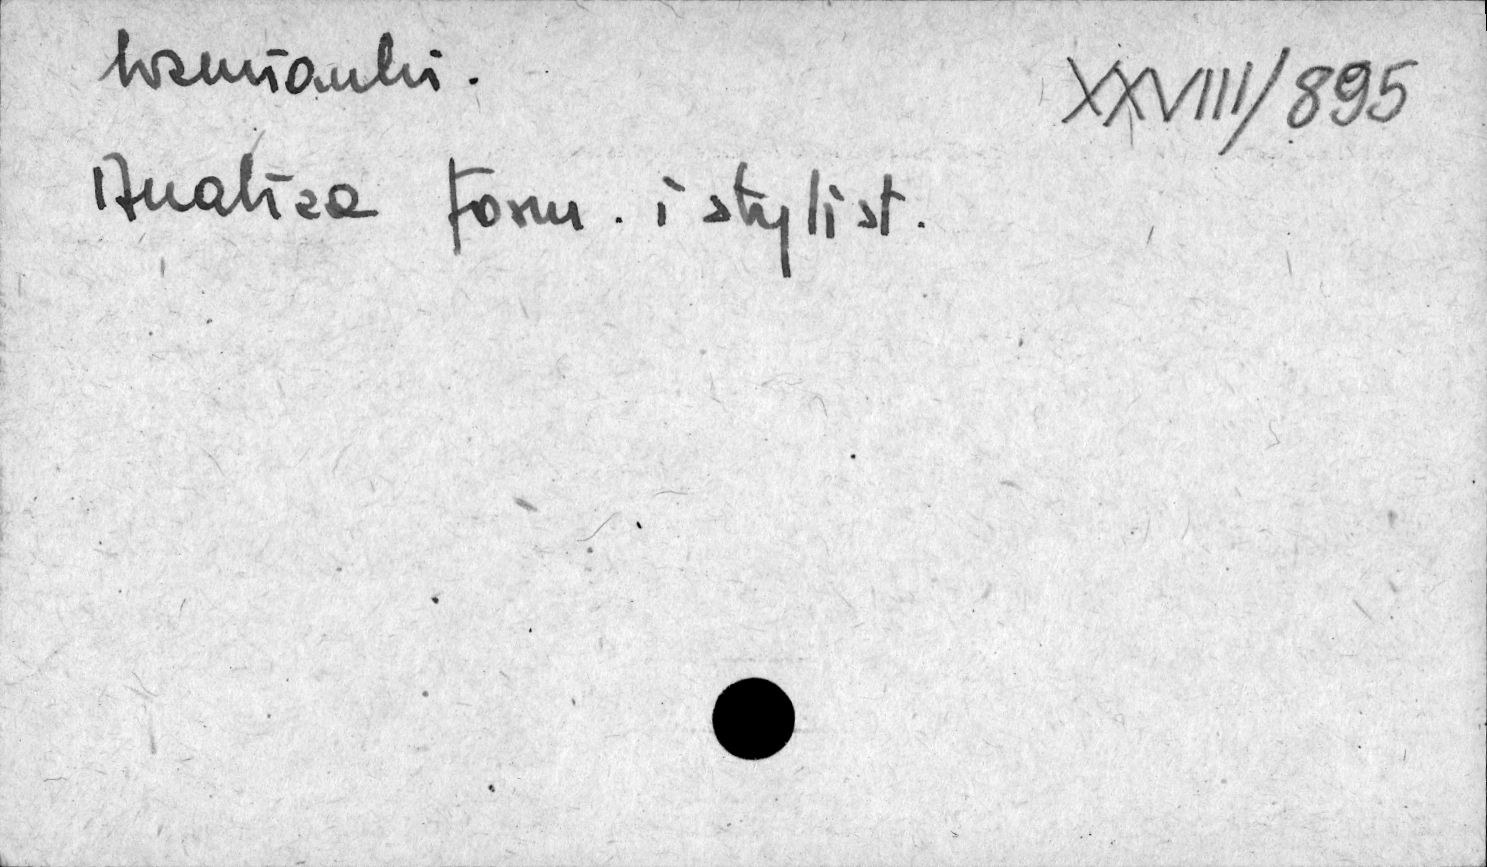 wzmianki.
XXVIII/895
Analiza form. i stylist.